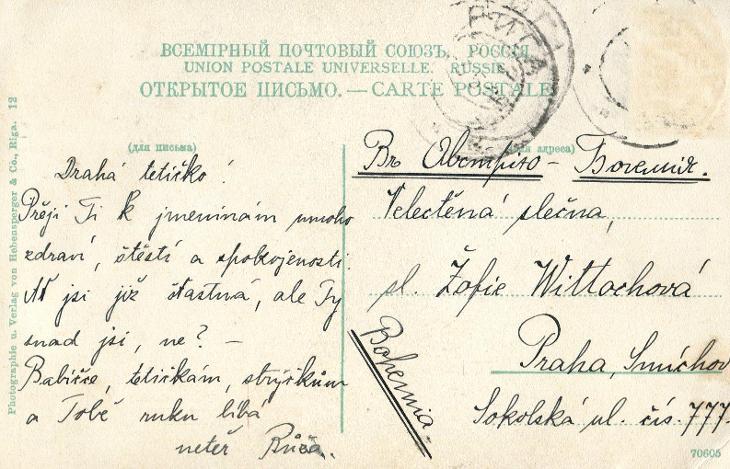 ВСЕМІРНЫЙ ПОЧТОВЫЙ СОЮЗЪ. РОССІЯ
UNION POSTALE UNIVERSELLE. RUSSIE
ОТКРЫТОЕ ПИСЬМО. — CARTE POSTALE
(для письма)
Drahá tetičko!
Přeji Ti k jmeninám mnoho
zdraví, štěstí a spokojenosti.
Ať jsi již šťastná, ale Ty
snad jsi, ne? —
Babičce, tetičkám, strýčkům
a Tobě ruku líbá
neteř Růža.
адреса)
Въ Австрію - Богемія.
Velectěná slečna,
sl. Žofie Wittochová
Praha, Smíchov
Sokolská ul. čís. 777.
Bohemia.
Photographie u. Verlag von Hebensperger & Co., Riga. 12
70605